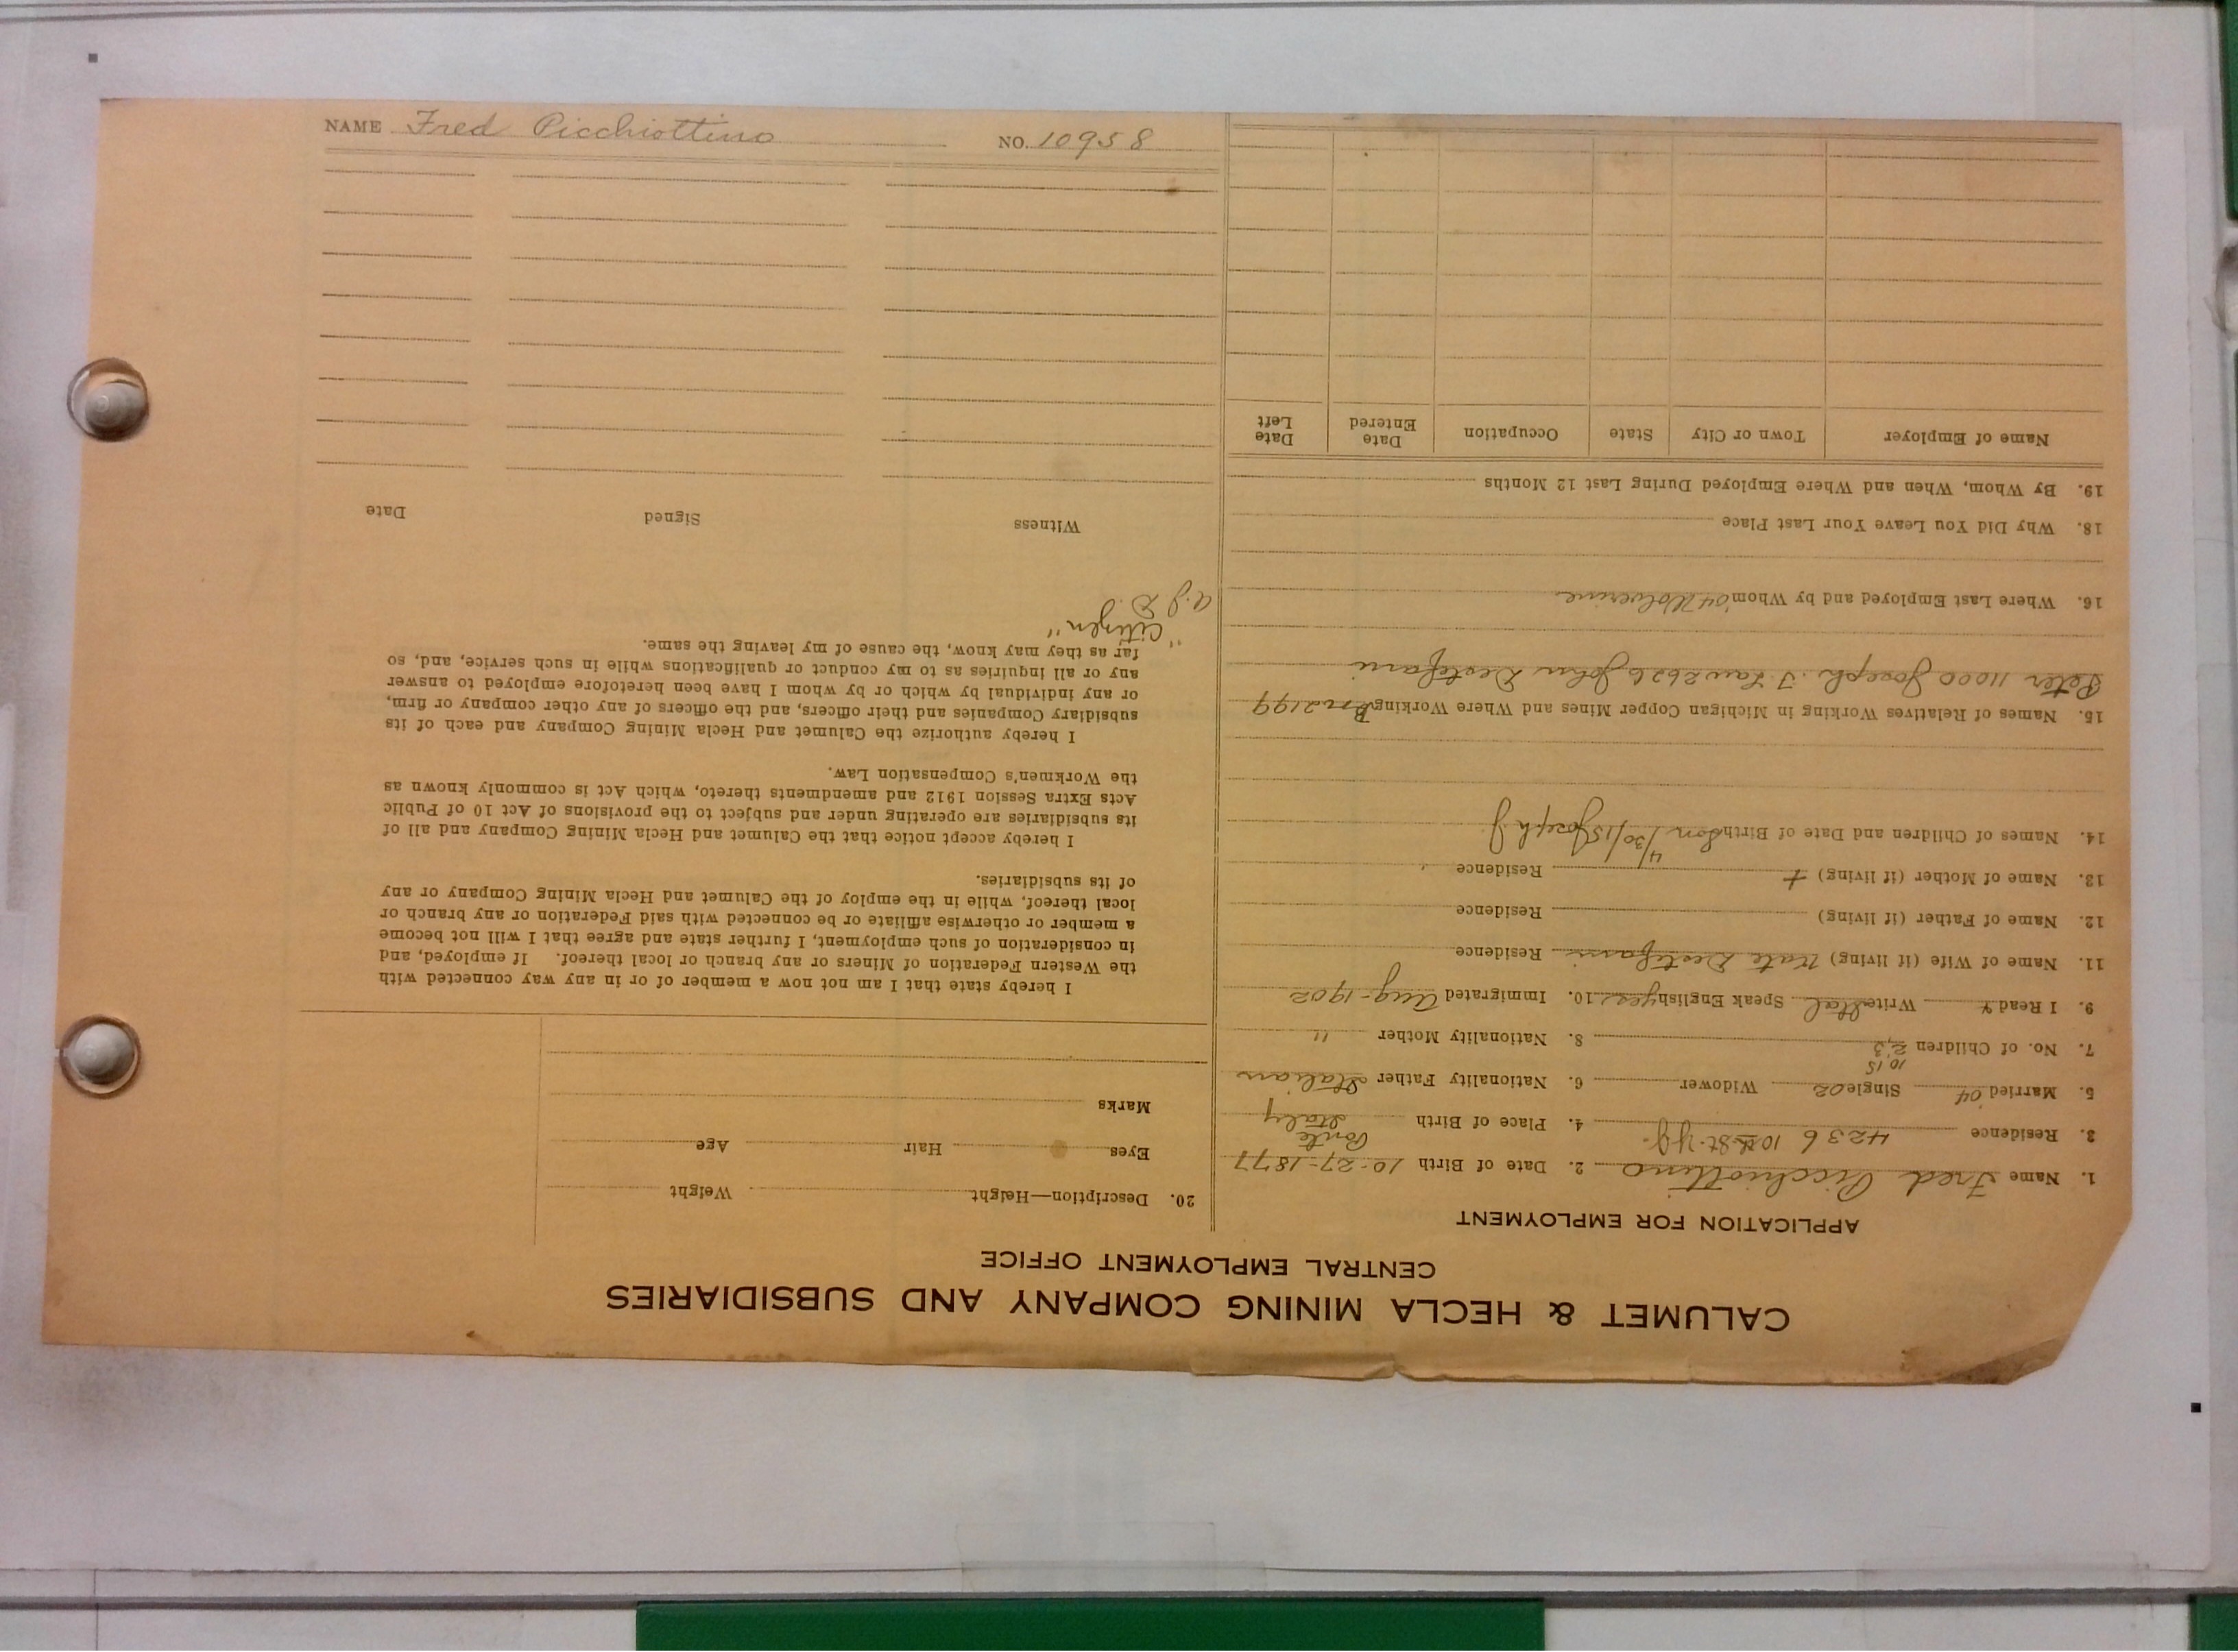 CALUMET & HECLA MINING COMPANY AND SUBSIDIARIES
CENTRAL EMPLOYMENT OFFICE
APPLICATION FOR EMPLOYMENT
1. Name Fred Picchiottino 2. Date of Birth 10-27-1877
3. Residence 4236 10th St. Y.J. 4. Place of Birth Ponte Italy
5. Married '04 Single 02 Widower 6. Nationality Father Italian
10 15
7. No. of Children 2,3 8. Nationality Mother "
9. I Read Y Write Ital Speak English yes 10. Immigrated Aug-1902
11. Name of Wife (if living) Kate Destefani Residence
12. Name of Father (if living) Residence
13. Name of Mother (if living) + Residence
14. Names of Children and Date of Birth 1 son 4/30/15 Joseph J
15. Names of Relatives Working in Michigan Copper Mines and Where Working Bro 2199
Peter 11000 Joseph. F. Law 2626 John Destefani
16. Where Last Employed and by Whom '04 Wolverine
18. Why Did You Leave Your Last Place
19. By Whom, When and Where Employed During Last 12 Months
Name of Employer Town or City State Occupation Date Entered Date Left
20. Description—Height Weight
Eyes Hair Age
Marks
I hereby state that I am not now a member of or in any way connected with
the Western Federation of Miners or any branch or local thereof. If employed, and
in consideration of such employment, I further state and agree that I will not become
a member or otherwise affiliate or be connected with said Federation or any branch or
local thereof, while in the employ of the Calumet and Hecla Mining Company or any
of its subsidiaries.
I hereby accept notice that the Calumet and Hecla Mining Company and all of
its subsidiaries are operating under and subject to the provisions of Act 10 of Public
Acts Extra Session 1912 and amendments thereto, which Act is commonly known as
the Workmen's Compensation Law.
I hereby authorize the Calumet and Hecla Mining Company and each of its
subsidiary Companies and their officers, and the officers of any other company or firm,
or any individual by which or by whom I have been heretofore employed to answer
any or all inquiries as to my conduct or qualifications while in such service, and, so
far as they may know, the cause of my leaving the same.
"Citizen"
Witness Signed Date
NAME Fred Picchiottino NO. 10958